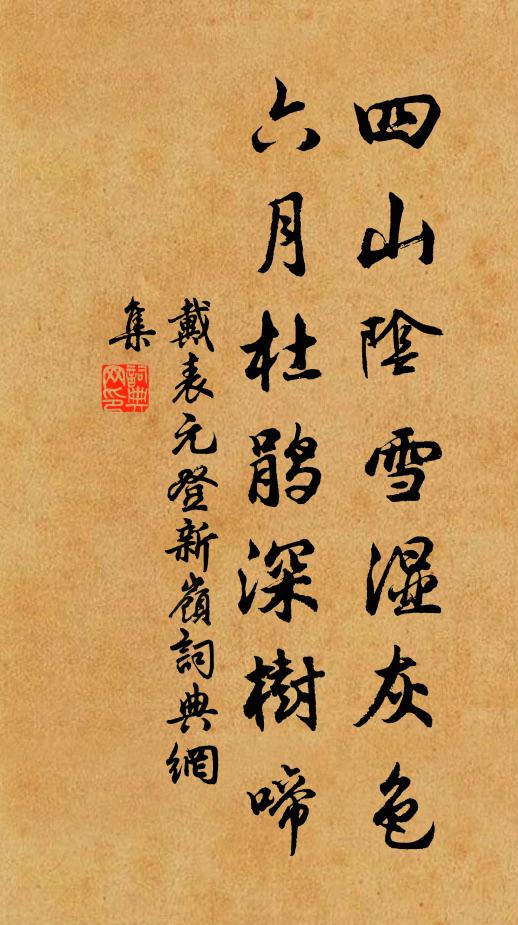 四山陰雪湿灰色
六月杜鹃深樹啼
戴表元登新嶺詞典網
集
詞典
网印